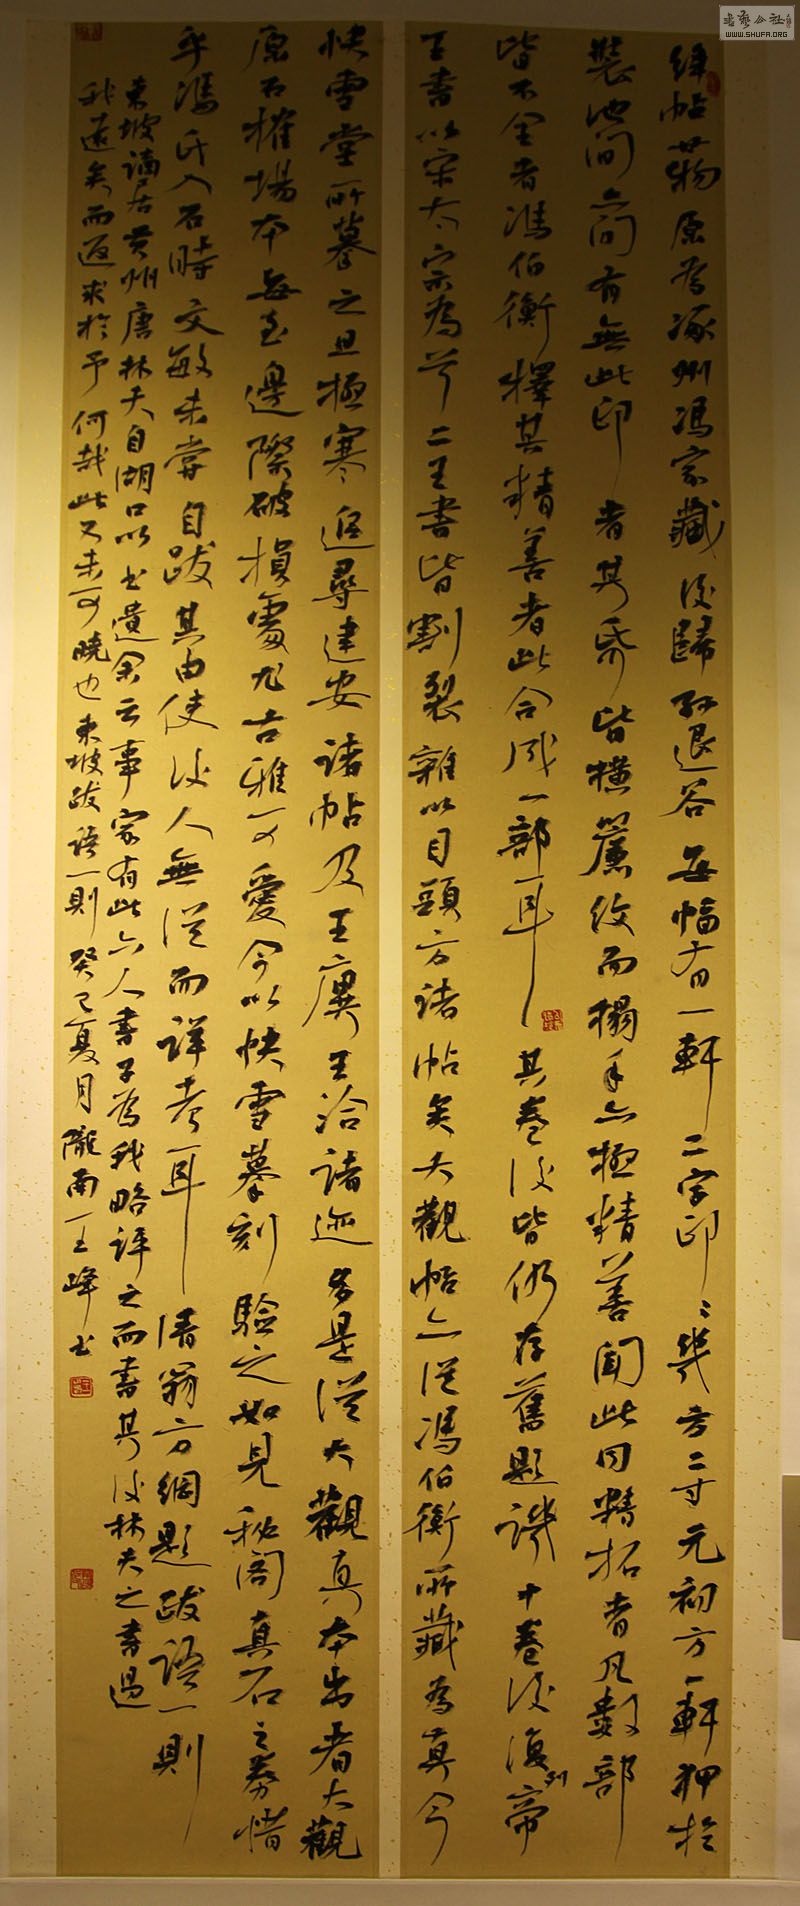 絳帖廿冊原為涿州馮家藏後歸孫退谷每幅有一軒二字印印幾方二寸元初方一軒押於
裝池間亦間有無此印者其紙皆橫簾紋而搨手亦極精善聞此同精拓者凡數部
皆不全者馮伯衡擇其精善者此合成一部耳其卷後皆仍存舊題識十卷後復列帝
王書以宋太宗為首二王書皆割裂雜以目頭方諸帖矣大觀帖亦從馮伯衡所藏為真今
快雪堂所摹之且極寒追尋建安諸帖及王廙王洽諸迹多是從大觀真本出者大觀
原石榷場本每至邊際破損處尤古雅可愛今以快雪摹刻驗之如見秘閣真石之舊惜
乎馮氏入石時文敏未嘗自跋其由使後人無從而詳考耳清翁方綱題跋語一則
東坡謫居黃州唐林夫自湖口以書遺余云事家有此六人書子為我略評之而書其後林夫之書過
我遠矣而返求於予何哉此又未可曉也東坡跋語一則癸巳夏月隴南王峰書
書藝公社
WWW.SHUFA.ORG